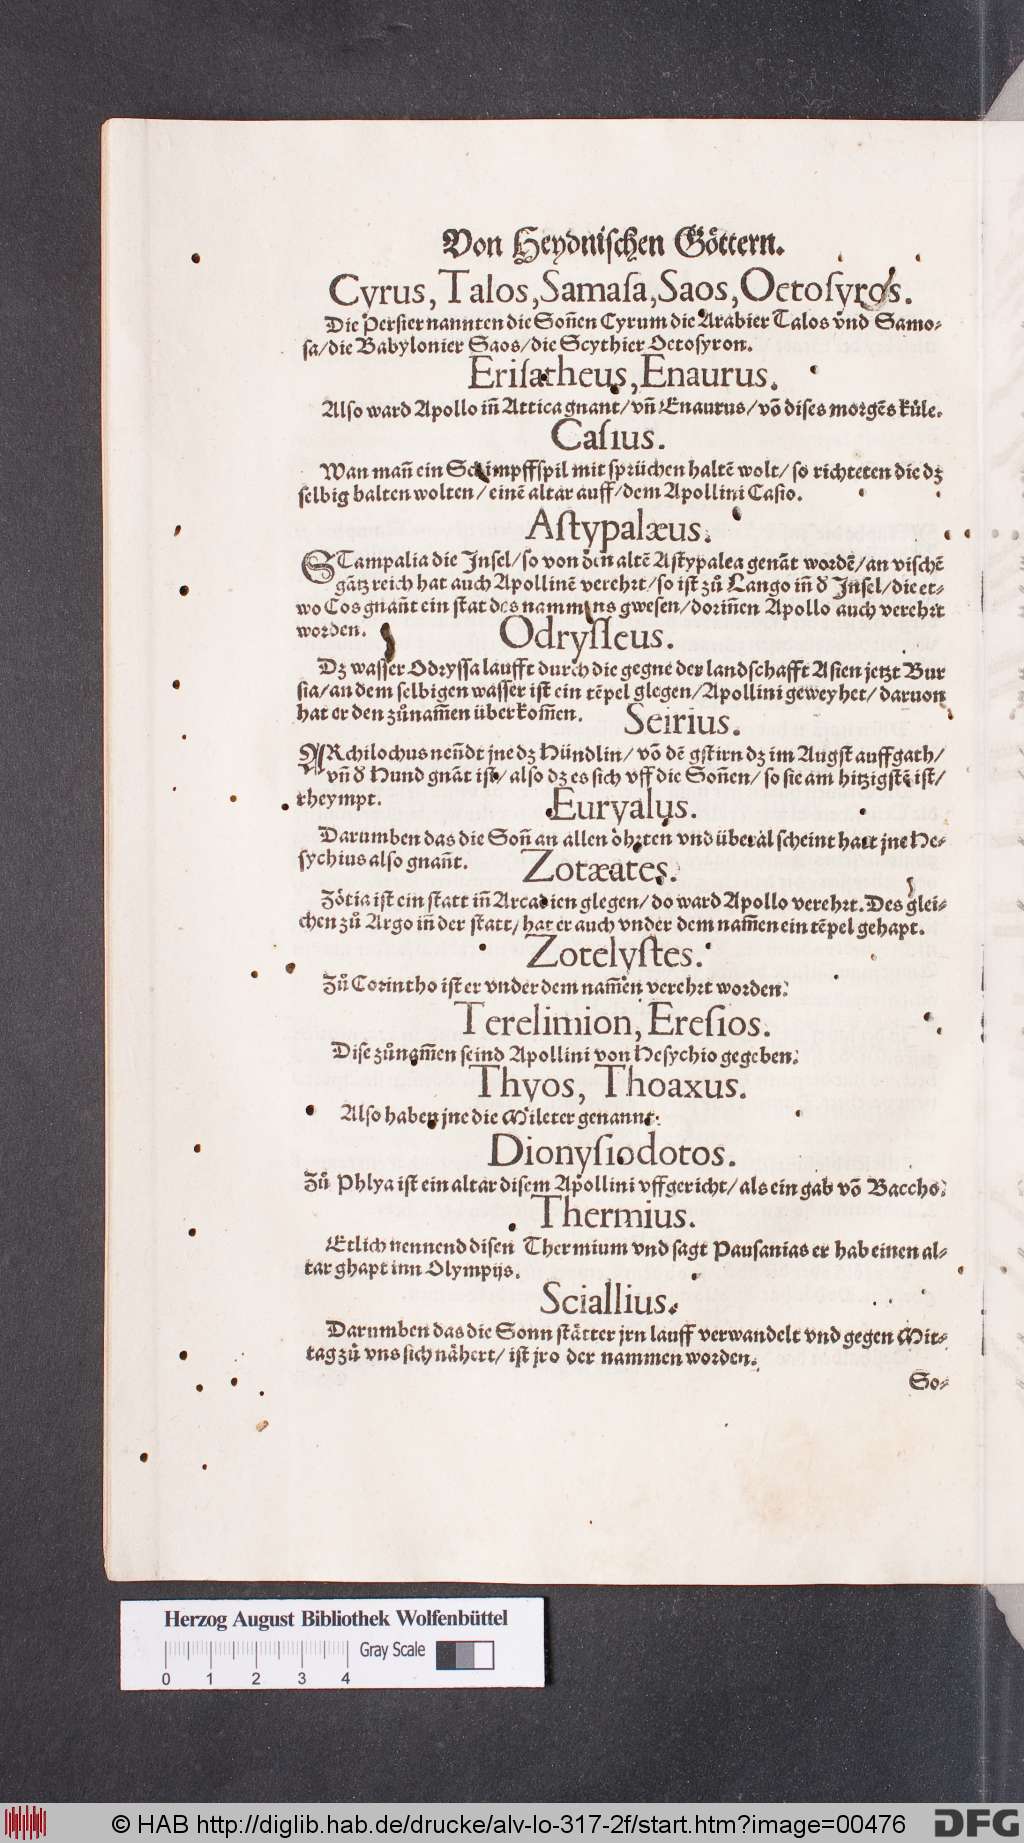 Von Heydnischen Göttern.
Cyrus, Talos, Samasa, Saos, Octosyros.
Die Persier nannten die Soñen Cyrum die Arabier Talos vnd Samo⸗
sa/ die Babylonier Saos/ die Scythier Octosyron.
Erisatheus, Enaurus.
Also ward Apollo iñ Attica gnant/ vñ Enaurus/ võ dises morgẽs kůle.
Casius.
Wan mañ ein Schimpffspil mit sprüchen haltẽ wolt/ so richteten die dz
selbig halten wolten/ einẽ altar auff/ dem Apollini Casio.
Astypalæus.
STampalia die Insel/ so von den altẽ Astypalea genãt wordẽ/ an vischẽ
gãtz reich hat auch Apollinẽ verehrt/ so ist zů Lango iñ d Insel/ die et⸗
wo Cos gnañt ein stat des nammens gwesen/ doriñen Apollo auch verehrt
worden.
Odrysseus.
Dz wasser Odryssa laufft durch die gegne der landschafft Asien jetzt Bur
sia/ an dem selbigen wasser ist ein tẽpel glegen/ Apollini geweyhet/ daruon
hat er den zůnam̃en überkom̃en.
Seirius.
ARchilochus neñdt jne dz Hündlin/ võ dẽ gstirn dz im Augst auffgath/
vñ d Hund gnãt ist/ also dz es sich vff die Soñen/ so sie am hitzigstẽ ist/
rheympt.
Euryalus.
Darumben das die Soñ an allen ôhrten vnd überal scheint hatt jne He⸗
sychius also gnañt.
Zotæates.
Zôtia ist ein statt iñ Arcadien glegen/ do ward Apollo verehrt. Des glei⸗
chen zů Argo iñ der statt/ hat er auch vnder dem nam̃en ein tẽpel gehapt.
Zotelystes.
Zů Corintho ist er vnder dem nam̃en verehrt worden.
Terelimion, Eresios.
Dise zůnam̃en seind Apollini von Hesychio gegeben.
Thyos, Thoaxus.
Also haben jne die Mileter genannt.
Dionysiodotos.
Zů Phlya ist ein altar disem Apollini vffgericht/ als ein gab võ Baccho.
Thermius.
Etlich nennend disen Thermium vnd sagt Pausanias er hab einen al⸗
tar ghapt inn Olympijs.
Sciallius.
Darumben das die Sonn stätter jrn lauff verwandelt vnd gegen Mit⸗
tag zů vns sich nåhert/ ist jro der nammen worden.
So⸗
Herzog August Bibliothek Wolfenbüttel
Gray Scale
0 1 2 3 4
© HAB http://diglib.hab.de/drucke/alv-lo-317-2f/start.htm?image=00476
DFG